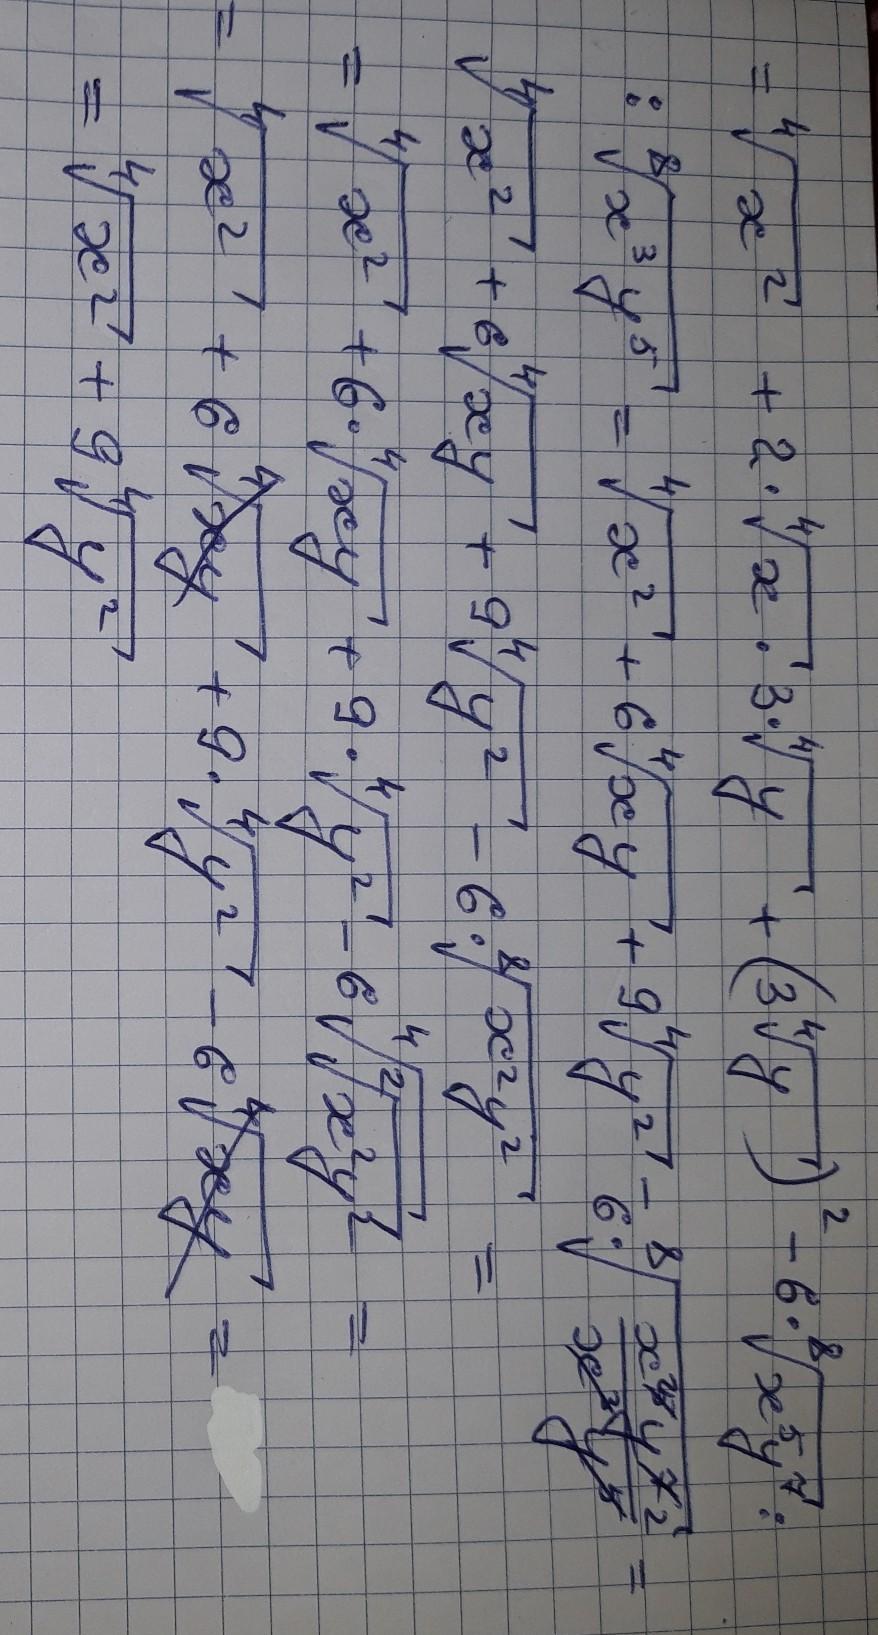 = ⁴√x² + 2·⁴√x · 3·⁴√y + (3⁴√y)² - 6·⁸√x⁵y⁷ :
: ⁸√x³y⁵ = ⁴√x² + 6⁴√xy + 9⁴√y² - 6·⁸√(x⁵y⁷ ² ²/x³y⁵) =
⁴√x² + 6⁴√xy + 9⁴√y² - 6·⁸√x²y² =
= ⁴√x² + 6·⁴√xy + 9·⁴√y² - 6⁴√²√x²y² =
= ⁴√x² + 6⁴√xy + 9·⁴√y² - 6⁴√xy =
= ⁴√x² + 9⁴√y²